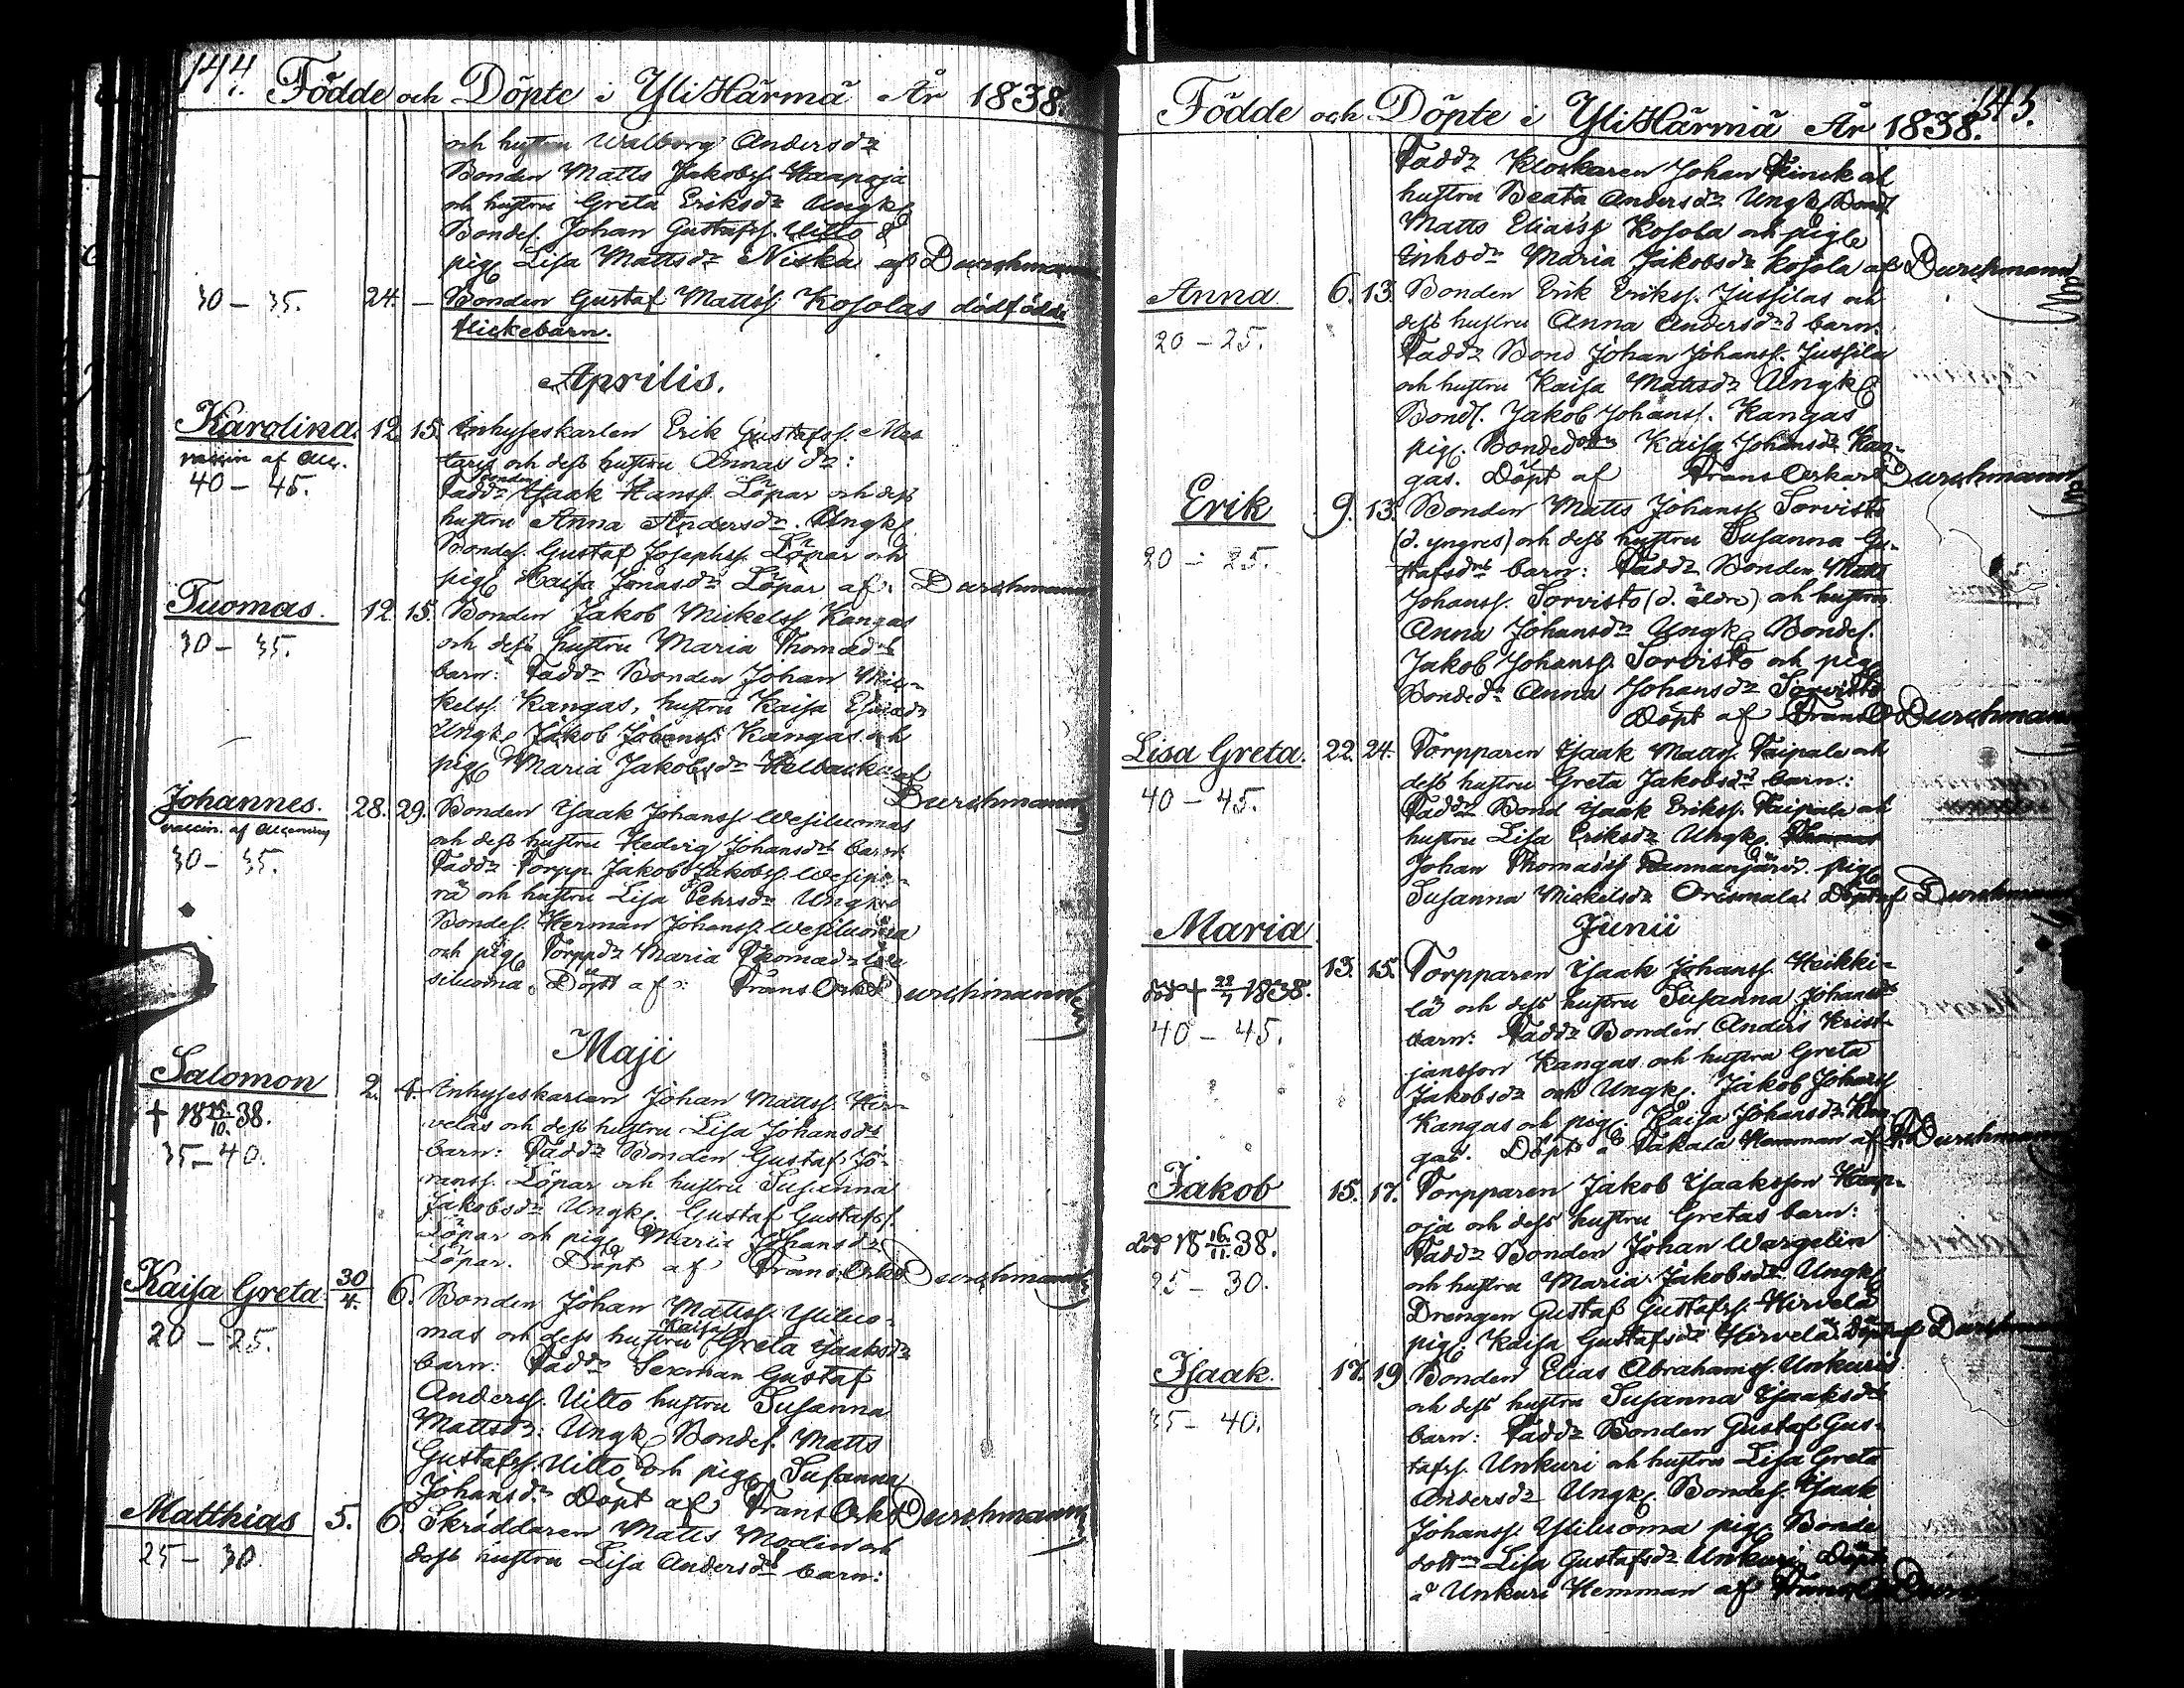 144.
Födde och Döpte i YliHärmä År 1838.
och hustru Walborg Andersdr
Bonden Matts Jakobss. Haapoja
och hustru Greta Eriksdr Ungk.
Bondes. Johan Gustafss. Uitto &
pig. Lisa Mattsdr Niska af Durchman
30 – 35. 24. – Bonden Gustaf Mattss. Kosolas dödfödde
flickebarn.
Aprilis.
Karolina. 12. 15. Inhyseskarlen Erik Gustafss.
vaccin af
40 – 45.
och dess hustru Annas dr:
Bonden
Faddr Isaak Hanss. Löpar och dess
hustru Anna Andersdr. Ungk.
Bondes. Gustaf Josephss. Löpar och
pig. Caisa Jonasdr Löpar af. Durchman
Tuomas. 12. 15. Bonden Jakob Mickelss. Kangas
30 – 35.
och dess hustru Maria Thomædrs
barn: Faddr Bonden Johan Mic-
kelss. Kangas, hustru Kaisa
Ungk. Jakob Johanss. Kangas och
pig. Maria Jakobsdr af
Durchmann
Johannes. 28. 29. Bonden Isaak Johanss Wesiluomas
vaccin. af
30 – 35.
och dess hustru Hedvig Johansdrs barn.
Faddr Torpp. Jakob Jakobss. Wesipe-
rä och hustru Lisa Pehrsdr Ungk.
Bondes. Herman Johanss. Wesiluoma
och pig. Torppdr Maria Thomædr We
siluoma. Döpt af: Frans Osk. Durchmann
Maji
Salomon 2. 4. Inhyseskarlen Johan Mattss. Hir-
† 18 38.
35–40.
velas och dess hustru Lisa Johansdrs
barn: Faddr Bonden Gustaf Jö-
ranss. Löpar och hustru Susanna
Jakobsdr Ungk. Gustaf Gustafss.
Löpar och pig. Maria Johansdr
Löpar. Döpt af Frans Osk. Durchmann
Kaisa Greta 30/4. 6. Bonden Johan Mattss. Yliluo-
20 – 25.
mas och dess hustru Kaisa Greta Isaaksdr
barn: Faddr Sexman Gustaf
Anderss. Uitto hustru Susanna
Mattsdr: Ungk. Bondes. Matts
Gustafss. Uitto och pig. Susanna
Johansdr Döpt af Frans Osk. Durchmann
Matthias 5. 6. Skräddaren Matts Modin och
25 – 30.
dess hustru Lisa Andersdrs barn:
145.
Födde och Döpte i YliHärmä År 1838.
Faddr Klockaren Johan och
hustru Beata Andersdr Ungk. Bond
Matts Eliass Kosola och pig.
Inhsdr Maria Jakobsdr Kosola af Durchmann
Anna 6. 13. Bonden Erik Erikss. Jussilas och
20 – 25.
dess hustru Anna Andersdrs barn.
Faddr Bond Johan Johanss. Jussila
och hustru Kaisa Mattsdr Ungk.
Bonds. Jakob Johanss. Kangas
pig. Bondedottr Kaisa Johansdr Kan-
gas. Döpt af Frans Oskar Durchmann
Erik 9. 13. Bonden Matts Johanss Sorvisto
20 – 25.
(d. yngres) och dess hustru Susanna Gu-
stafsdrs barn: Faddr Bonden Matts
Johanss. Sorvisto (d. äldre) och hustru
Anna Johansdr Ungk Bondes.
Jakob Johanss. Sorvisto och pig
Bondedr Anna Johansdr Sorvisto
Döpt af Frans O Durchmann
Lisa Greta. 22. 24. Torpparen Isaak Mattss. Taipale och
40 – 45.
dess hustru Greta Jakobsdrs barn:
Faddr Bond Isaak Erikss. Taipale och
hustru Lisa Eriksdr Ungk.
Johan Thomass Rannanjärvi pig.
Susanna Mickelsdr Orismala. Döpt af Durchmann
Junii
Maria 13. 15. Torpparen Isaak Johanss. Heikki-
död † 22/7 1838.
40 – 45.
lä och dess hustru Susanna Johansdrs
barn: Faddr Bonden Anders Krist-
jansson Kangas och hustru Greta
Jakobsdr och Ungk. Jakob Johanss
Kangas och pig. Kaisa Johansdr Kan
gas. Döpt å Takala Hemman af Durchmann
Jakob 15. 17. Torpparen Jakob Isaaksson Haap-
död 18 16/11. 38.
25 – 30.
oja och dess hustru Gretas barn:
Faddr Bonden Johan Wargelin
och hustru Maria Jakobsdr Ungk
Drengen Gustaf Gustafss. Hirvelä
pig. Kaisa Gustafsdr Hirvelä Döpt af Durchman
Isaak. 17. 19 Bonden Elias Abrahamss. Unkuris
35 – 40.
och dess hustru Susanna Isaaksdrs
barn: Faddr Bonden Gustaf Gus-
tafss. Unkuri och hustru Lisa Greta
Andersdr Ungk. Bondes. Isaak
Johanss. Yliluoma pig. Bonde
dottrn Lisa Gustafsdr Unkuri Döpt
å Unkuri Hemman af Frans O Durch